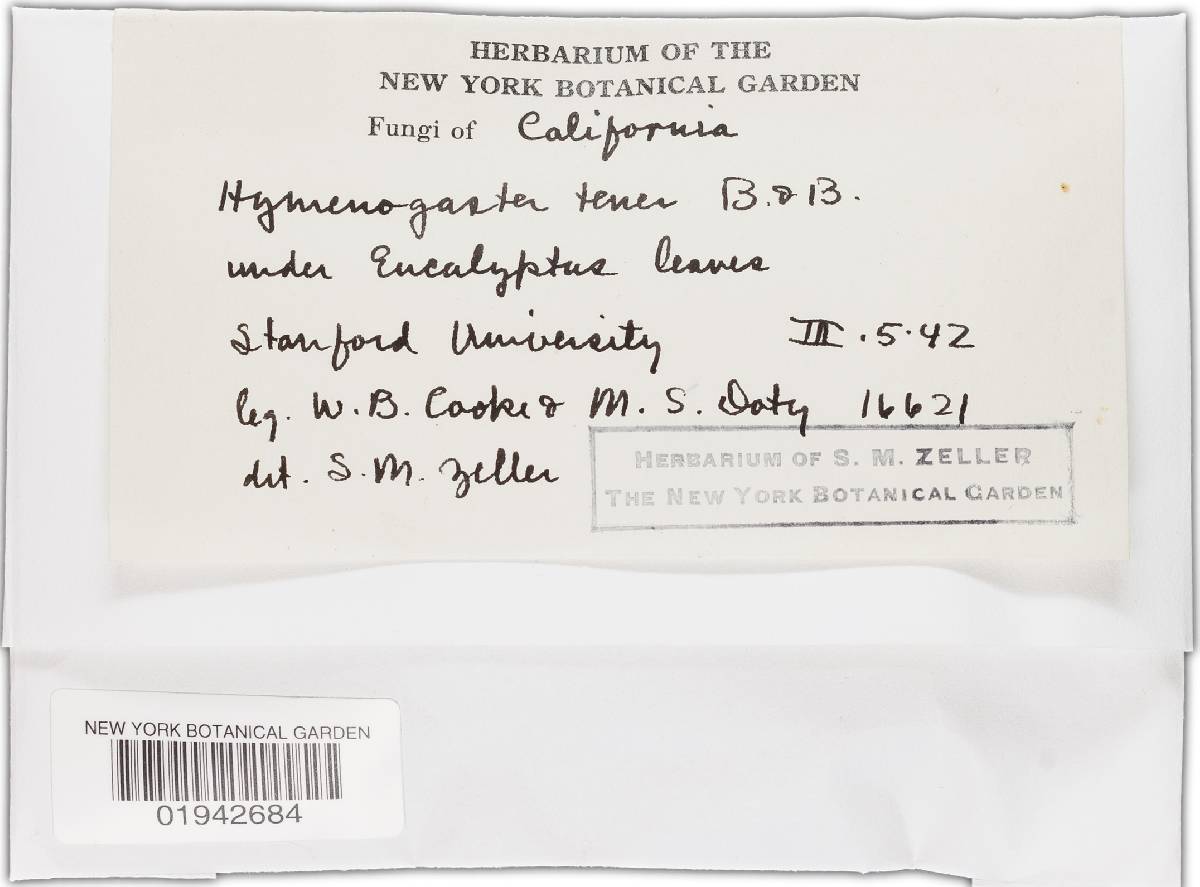 HERBARIUM OF THE
NEW YORK BOTANICAL GARDEN
Fungi of California
Hymenogaster tener B. & B.
under Eucalyptus leaves
Stanford University III.5.42
leg. W. B. Cooke & M. S. Doty 16621
det. S. M. Zeller
HERBARIUM OF S. M. ZELLER
THE NEW YORK BOTANICAL GARDEN
NEW YORK BOTANICAL GARDEN
01942684